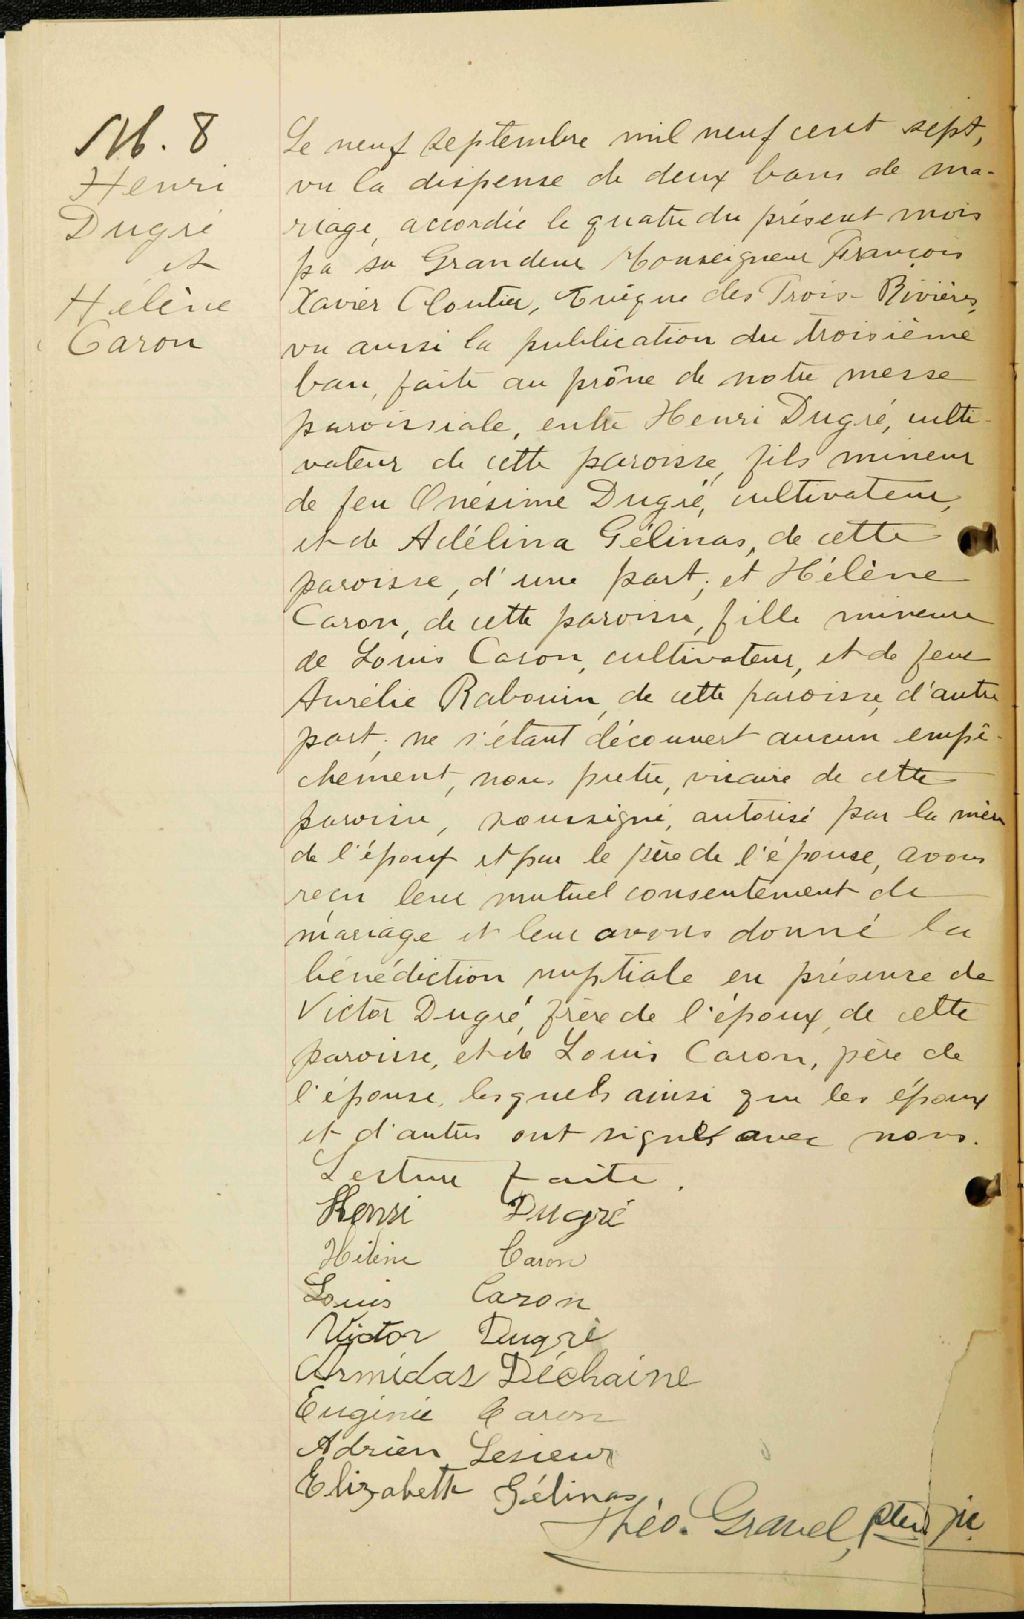 M. 8
Henri
Dugré
et
Hélène
Caron
Le neuf septembre mil neuf cent sept,
vu la dispense de deux bans de ma-
riage, accordée le quatre du présent mois
pa sa Grandeur Monseigneur François
Xavier Cloutier, Évêque des Trois-Rivières,
vu aussi la publication du troisième
ban, faite au prône de notre messe
paroissiale, entre Henri Dugré, culti-
vateur de cette paroisse, fils mineur
de feu Onésime Dugré, cultivateur,
et de Adélina Gélinas, de cette
paroisse, d'une part; et Hélène
Caron, de cette paroisse, fille mineure
de Louis Caron, cultivateur, et de feue
Aurélie Rabouin, de cette paroisse, d'autre
part; ne s'étant découvert aucun empê-
chement, nous prêtre, vicaire de cette
paroisse, soussigné, autorisé par la mère
de l'époux et par le père de l'épouse, avons
reçu leur mutuel consentement de
mariage et leur avons donné la
bénédiction nuptiale en présence de
Victor Dugré, frère de l'époux, de cette
paroisse, et de Louis Caron, père de
l'épouse, lesquels ainsi que les époux
et d'autres ont signés avec nous.
Lecture faite.
Henri Dugré
Hélène Caron
Louis Caron
Victor Dugré
Armidas Déchaine
Eugénie Caron
Adrien Lesieur
Elizabeth Gélinas.
Théo. Gravel, ptre